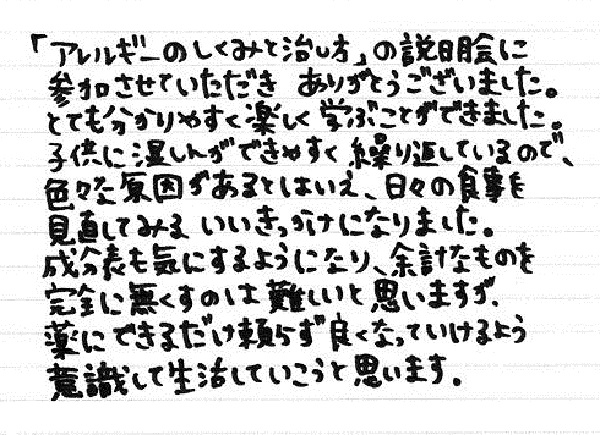 「アレルギーのしくみと治し方」の説明会に
参加させていただき ありがとうございました。
とても分かりやすく楽しく学ぶことができました。
子供に湿しんができやすく繰り返しているので、
色々な原因があるとはいえ、日々の食事を
見直してみる いいきっかけになりました。
成分表も気にするようになり、余計なものを
完全に無くすのは難しいと思いますが、
薬にできるだけ頼らず良くなっていけるよう
意識して生活していこうと思います。